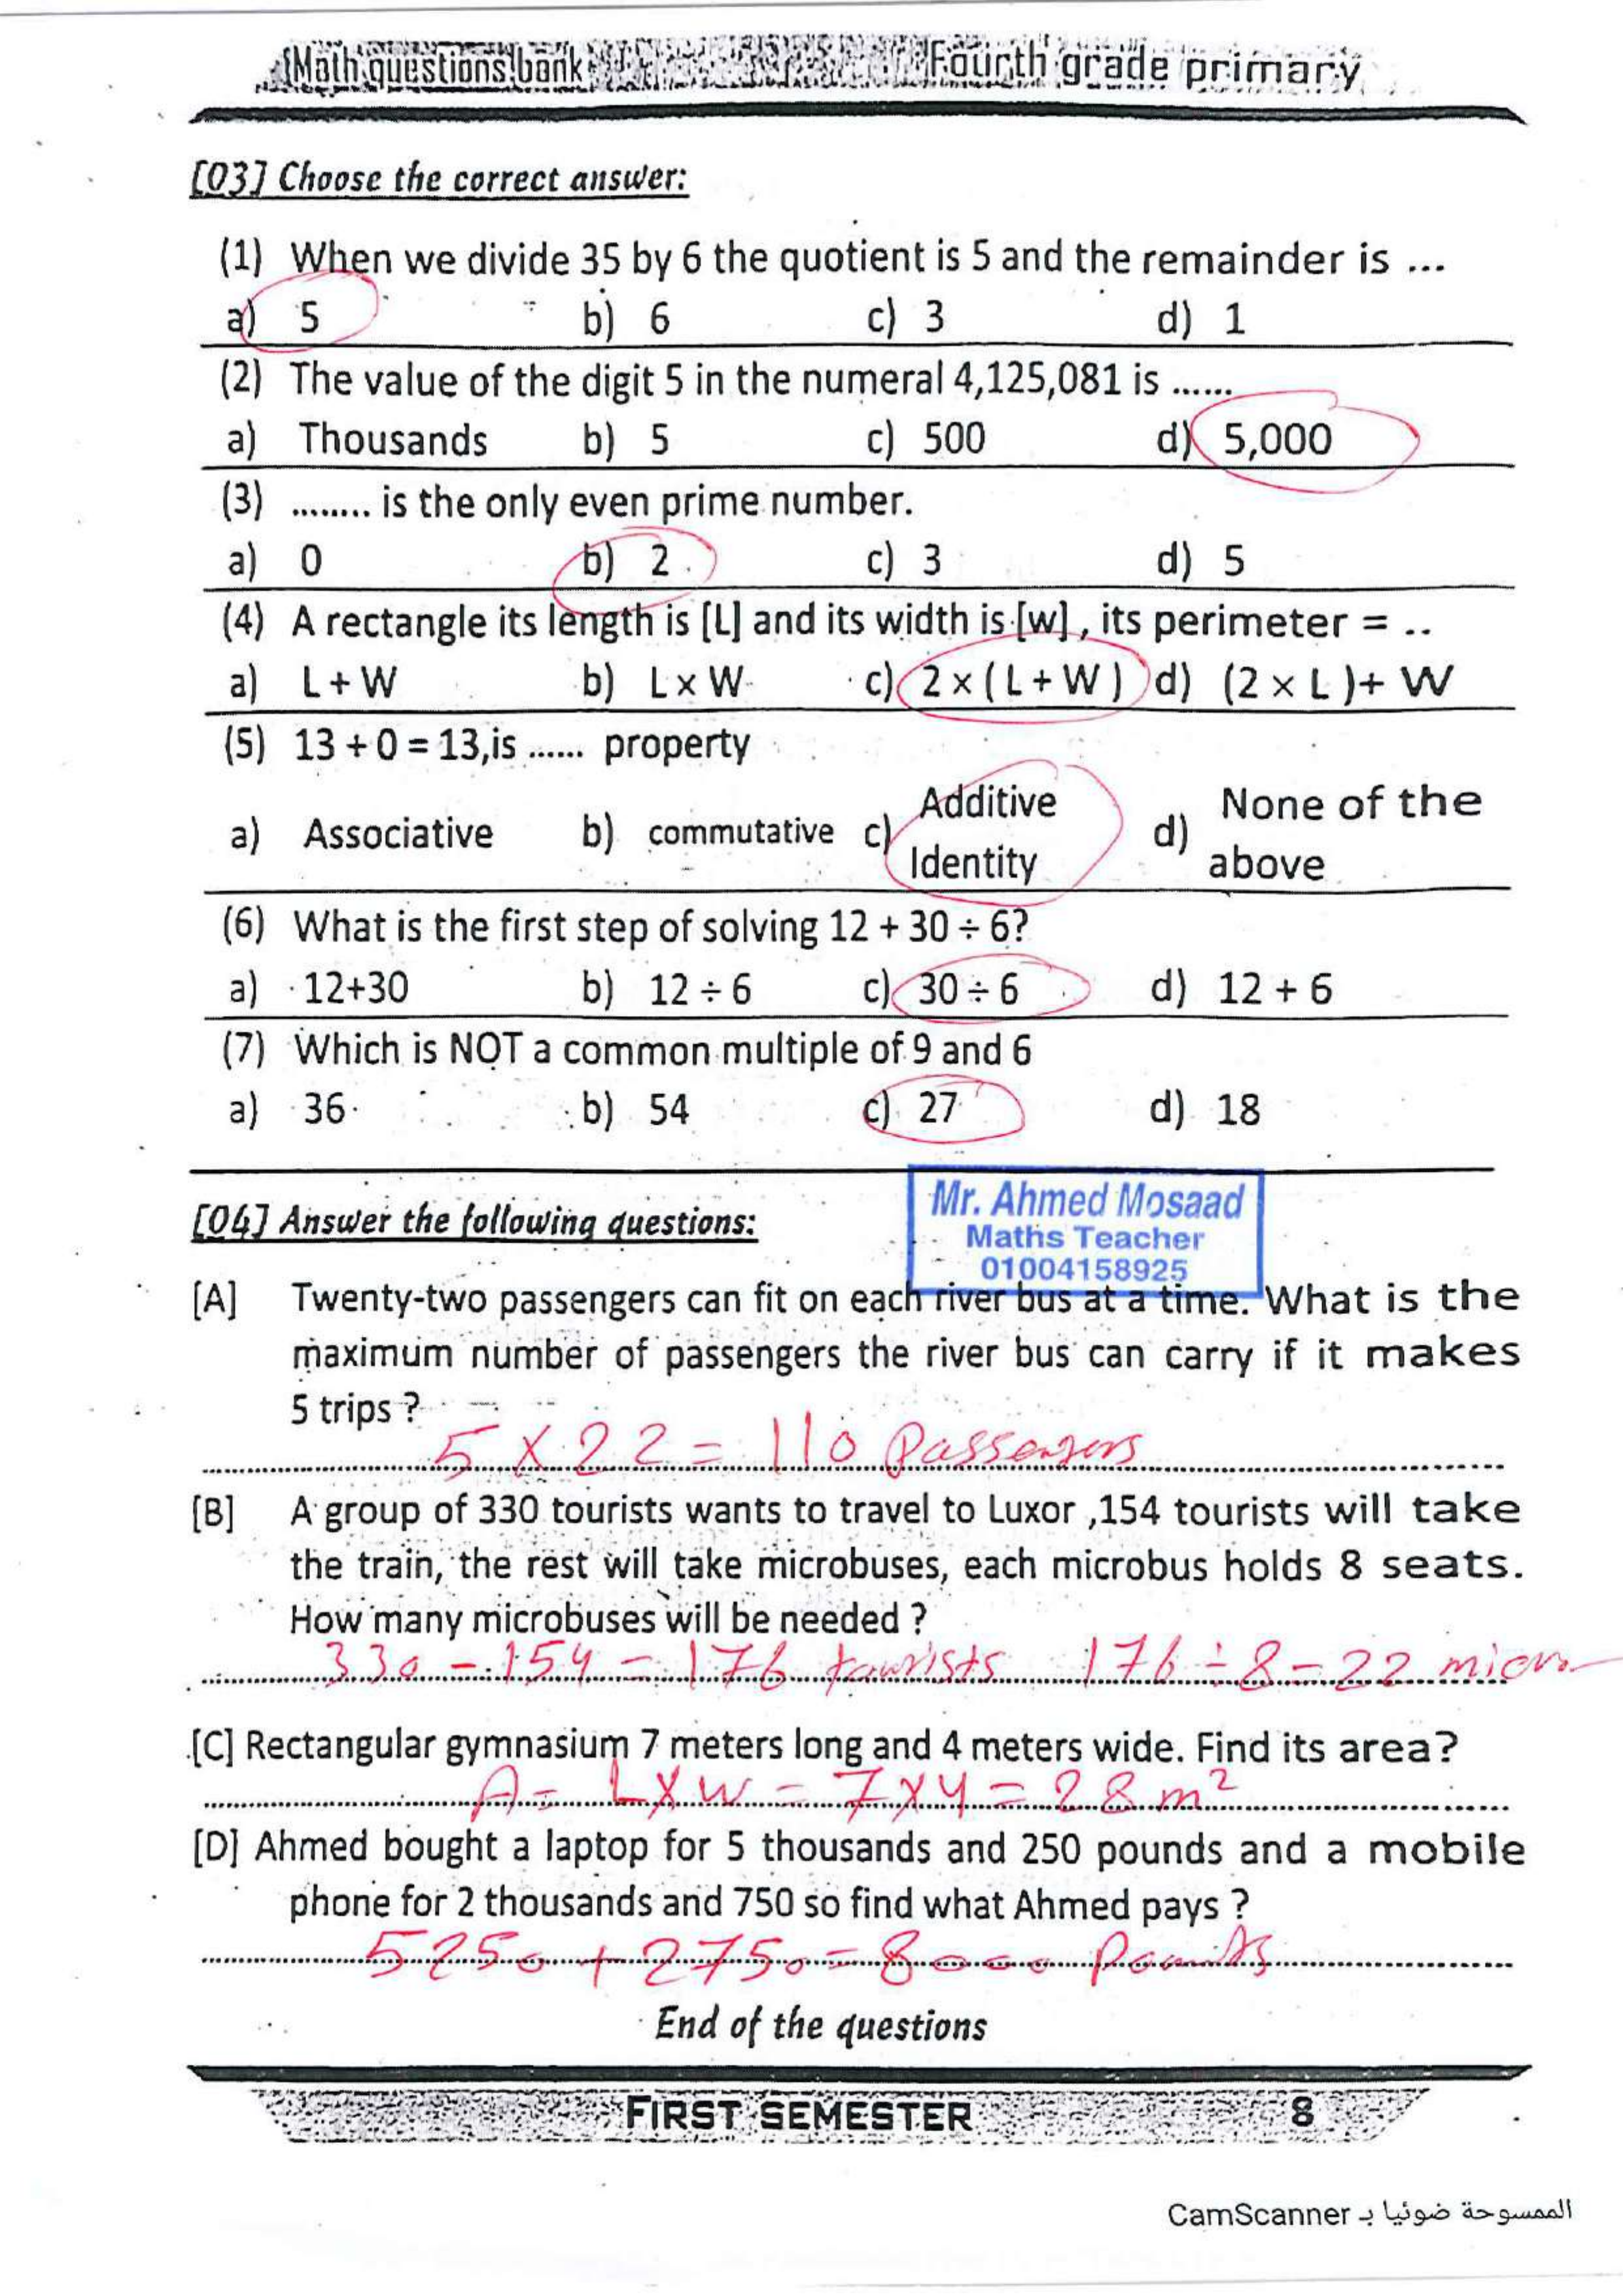 Math questions bank Fourth grade primary
[03] Choose the correct answer:
(1) When we divide 35 by 6 the quotient is 5 and the remainder is ...
a) 5 b) 6 c) 3 d) 1
(2) The value of the digit 5 in the numeral 4,125,081 is ......
a) Thousands b) 5 c) 500 d) 5,000
(3) ........ is the only even prime number.
a) 0 b) 2 c) 3 d) 5
(4) A rectangle its length is [L] and its width is [w] , its perimeter = ..
a) L + W b) L × W c) 2 × ( L + W ) d) (2 × L )+ W
(5) 13 + 0 = 13,is ...... property
a) Associative b) commutative c) Additive Identity d) None of the above
(6) What is the first step of solving 12 + 30 ÷ 6?
a) 12+30 b) 12 ÷ 6 c) 30 ÷ 6 d) 12 + 6
(7) Which is NOT a common multiple of 9 and 6
a) 36 b) 54 c) 27 d) 18
Mr. Ahmed Mosaad
Maths Teacher
01004158925
[04] Answer the following questions:
[A] Twenty-two passengers can fit on each river bus at a time. What is the
maximum number of passengers the river bus can carry if it makes
5 trips ?
5 × 22 = 110 Passengers
[B] A group of 330 tourists wants to travel to Luxor ,154 tourists will take
the train, the rest will take microbuses, each microbus holds 8 seats.
How many microbuses will be needed ?
330 - 154 = 176 tourists 176 ÷ 8 = 22 micro
[C] Rectangular gymnasium 7 meters long and 4 meters wide. Find its area?
A = L × W = 7 × 4 = 28 m²
[D] Ahmed bought a laptop for 5 thousands and 250 pounds and a mobile
phone for 2 thousands and 750 so find what Ahmed pays ?
5250 + 2750 = 8000 Pounds
End of the questions
FIRST SEMESTER 8
الممسوحة ضوئيا بـ CamScanner